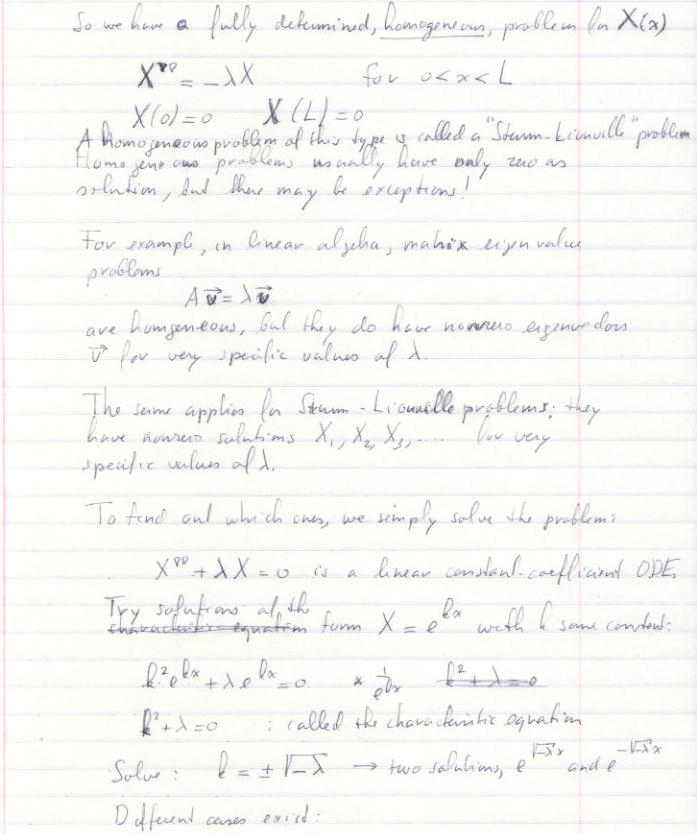 So we have a fully determined, homogeneous, problem for X(x)
X'' = -λX for 0<x<L
X(0)=0 X(L)=0
A homogeneous problem of this type is called a "Sturm-Liouville" problem
Homogeneous problems usually have only zero as
solution, but there may be exceptions!
For example, in linear algebra, matrix eigenvalue
problems
A v⃗ = λ v⃗
are homgeneous, but they do have nonzero eigenvectors
v⃗ for very specific values of λ.
The same applies for Sturm-Liouville problems; they
have nonzero solutions X₁, X₂, X₃, .... for very
specific values of λ.
To find out which ones, we simply solve the problem:
X'' + λX = 0 is a linear constant-coefficient ODE.
Try solutions of the
characteristic equation form X = e^{kx} with k some constant:
k² e^{kx} + λ e^{kx} = 0 × 1/e^{kx} k² + λ = 0
k² + λ = 0 : called the characteristic equation
Solve : k = ± √-λ → two solutions, e^{√-λ x} and e^{-√-λ x}
Different cases exist: